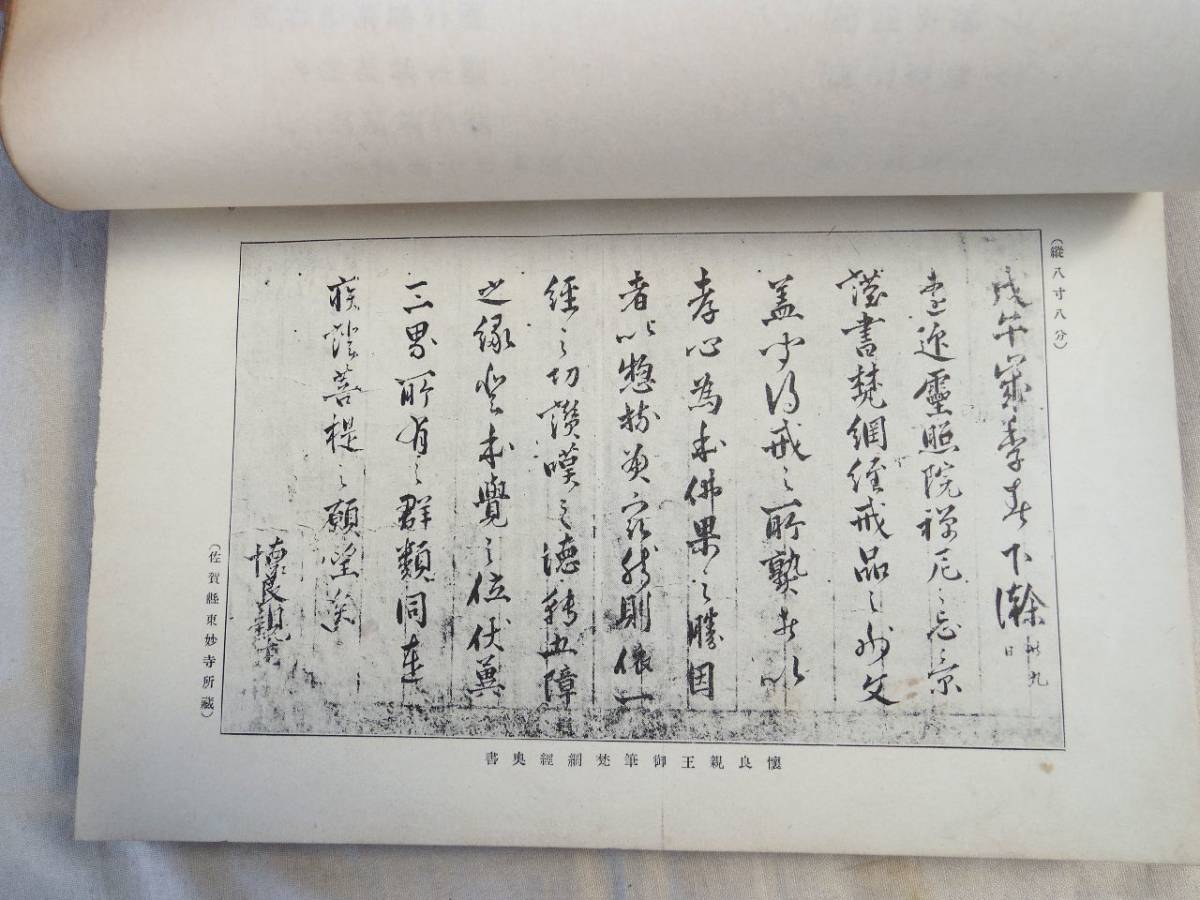 (縱八寸八分)
戊午歳季春下澣 廿九日
逢迎靈照院禅尼之忌景
謹書梵網経戒品之妙文
盖聞得戒之所熟者以
孝心為本佛果之勝因
者以惣持為
然則依一
経之功讃嘆之徳轉五障
之縁登本覺之位伏冀
三界所有之群類同遂
疾證菩提之願望矣
懐良親王
(佐賀縣東妙寺所藏)
懷良親王御筆梵網經奥書